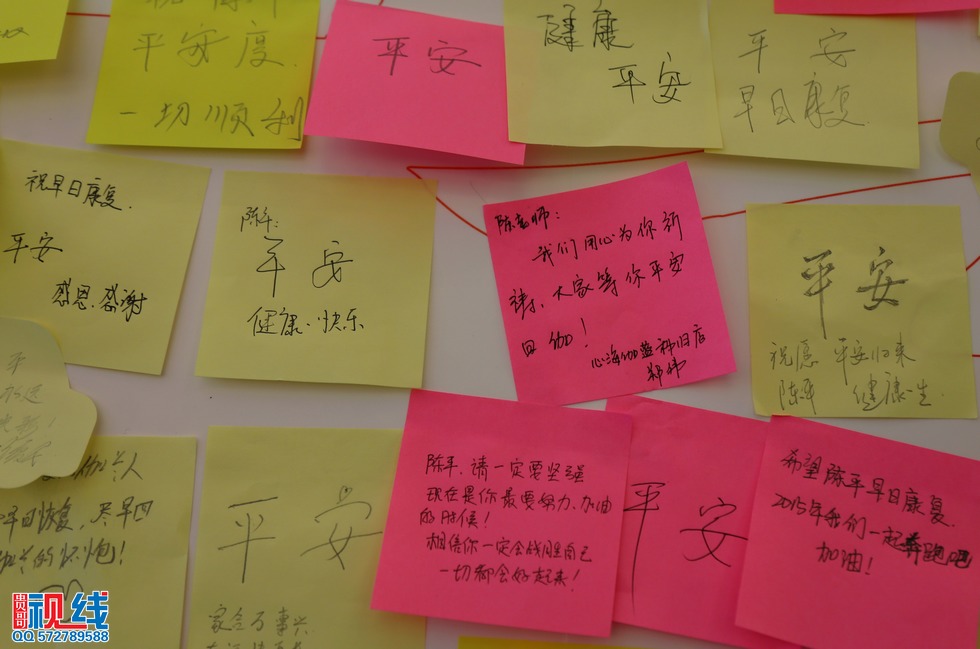 平安度
一切顺利
平安
健康
平安
平安
早日康复
祝早日康复.
平安
感恩.感谢
陈平:
平安
健康、快乐
陈老师:
我们用心为你祈
祷、大家等你平安
回伽!
心海伽蓝 神旧店
平安
祝愿 平安归来
陈平 健康一生.
平
早日恢复,尽早回
的怀抱!
平安
家合万事兴
陈平,请一定要坚强
现在是你最要努力、加油
的时候!
相信你一定会战胜自己
一切都会好起来!
平安
希望陈平早日康复.
2015年我们一起奔跑吧
加油!
贵哥视线
QQ 572789588